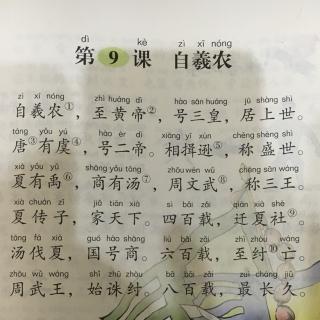 dì kè zì xī nóng
第 9 课 自羲农
zì xī nóng zhì huáng dì hào sān huáng jū shàng shì
自羲农①，至黄帝②，号三皇，居上世。
táng yǒu yú hào èr dì xiāng yī xùn chēng shèng shì
唐③有虞④，号二帝。相揖逊⑤，称盛世。
xià yǒu yǔ shāng yǒu tāng zhōu wén wǔ chēng sān wáng
夏有禹⑥，商有汤⑦，周文武⑧，称三王。
xià chuán zǐ jiā tiān xià sì bǎi zǎi qiān xià shè
夏传子，家天下。四百载，迁夏社⑨。
tāng fá xià guó hào shāng liù bǎi zǎi zhì zhòu wáng
汤伐夏，国号商。六百载，至纣⑩亡。
zhōu wǔ wáng shǐ zhū zhòu bā bǎi zǎi zuì cháng jiǔ
周武王，始诛纣。八百载，最长久。